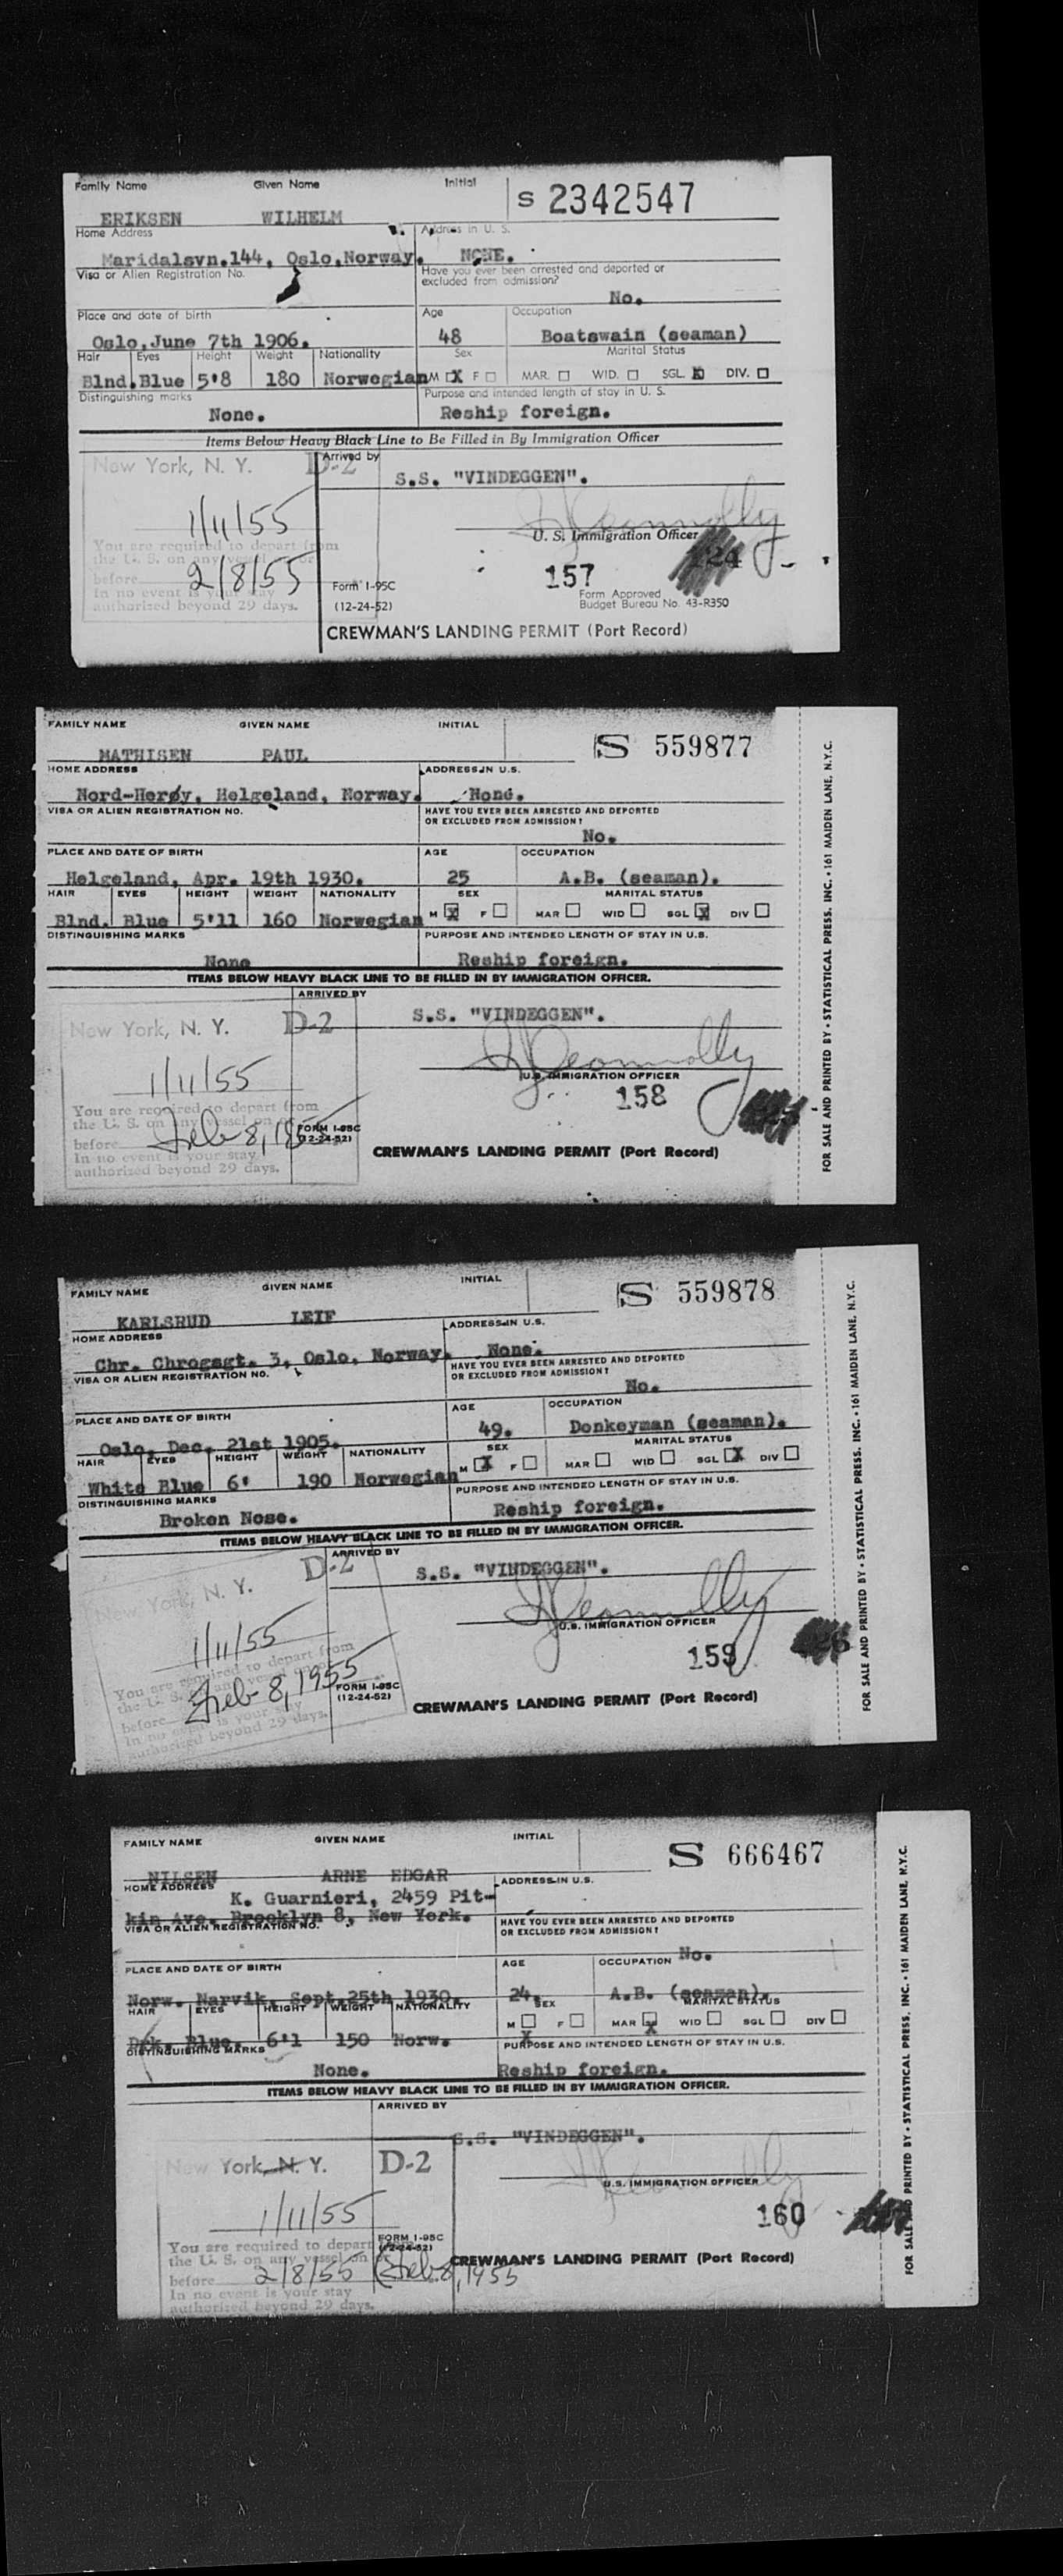 Family Name Given Name Initial S 2342547
ERIKSEN WILHELM
Home Address Address in U. S.
Maridalsvn.144, Oslo,Norway. NONE.
Visa or Alien Registration No. Have you ever been arrested and deported or
excluded from admission?
No.
Place and date of birth Age Occupation
Oslo,June 7th 1906. 48 Boatswain (seaman)
Hair Eyes Height Weight Nationality Sex Marital Status
Blnd. Blue 5'8 180 Norwegian M X F MAR. WID. SGL. X DIV.
Distinguishing marks Purpose and intended length of stay in U. S.
None. Reship foreign.
Items Below Heavy Black Line to Be Filled in By Immigration Officer
New York, N. Y. D-2 Arrived by
S.S. "VINDEGGEN".
1/11/55
U. S. Immigration Officer
You are required to depart from
the U. S. on any vessel on or
before 2/8/55
In no event is your stay
authorized beyond 29 days.
157
Form I-95C
(12-24-52)
Form Approved
Budget Bureau No. 43-R350
CREWMAN'S LANDING PERMIT (Port Record)
FAMILY NAME GIVEN NAME INITIAL S 559877
MATHISEN PAUL
HOME ADDRESS ADDRESS IN U.S.
Nord-Herøy, Helgeland, Norway. None.
VISA OR ALIEN REGISTRATION NO. HAVE YOU EVER BEEN ARRESTED AND DEPORTED
OR EXCLUDED FROM ADMISSION?
No.
PLACE AND DATE OF BIRTH AGE OCCUPATION
Helgeland, Apr. 19th 1930. 25 A.B. (seaman).
HAIR EYES HEIGHT WEIGHT NATIONALITY SEX MARITAL STATUS
Blnd. Blue 5'11 160 Norwegian M X F MAR WID SGL X DIV
DISTINGUISHING MARKS PURPOSE AND INTENDED LENGTH OF STAY IN U.S.
None Reship foreign.
ITEMS BELOW HEAVY BLACK LINE TO BE FILLED IN BY IMMIGRATION OFFICER.
ARRIVED BY
New York, N. Y. D-2 S.S. "VINDEGGEN".
1/11/55
U.S. IMMIGRATION OFFICER
158
You are required to depart from
the U. S. on any vessel on or
before Feb 8, 1955
In no event is your stay
authorized beyond 29 days.
FORM I-95C
(12-24-52)
CREWMAN'S LANDING PERMIT (Port Record)
FOR SALE AND PRINTED BY • STATISTICAL PRESS. INC. • 161 MAIDEN LANE, N.Y.C.
FAMILY NAME GIVEN NAME INITIAL S 559878
KARLSRUD LEIF
HOME ADDRESS ADDRESS IN U.S.
Chr. Chrogsgt. 3, Oslo, Norway. None.
VISA OR ALIEN REGISTRATION NO. HAVE YOU EVER BEEN ARRESTED AND DEPORTED
OR EXCLUDED FROM ADMISSION?
No.
PLACE AND DATE OF BIRTH AGE OCCUPATION
Oslo, Dec. 21st 1905. 49. Donkeyman (seaman).
HAIR EYES HEIGHT WEIGHT NATIONALITY SEX MARITAL STATUS
White Blue 6' 190 Norwegian M X F MAR WID SGL X DIV
DISTINGUISHING MARKS PURPOSE AND INTENDED LENGTH OF STAY IN U.S.
Broken Nose. Reship foreign.
ITEMS BELOW HEAVY BLACK LINE TO BE FILLED IN BY IMMIGRATION OFFICER.
D-2 ARRIVED BY
New York, N. Y. S.S. "VINDEGGEN".
1/11/55
U.S. IMMIGRATION OFFICER
159
You are required to depart from
the U. S. on any vessel on or
before Feb 8, 1955
In no event is your stay
authorized beyond 29 days.
FORM I-95C
(12-24-52)
CREWMAN'S LANDING PERMIT (Port Record)
FOR SALE AND PRINTED BY • STATISTICAL PRESS. INC. • 161 MAIDEN LANE, N.Y.C.
FAMILY NAME GIVEN NAME INITIAL S 666467
NILSEN ARNE EDGAR
HOME ADDRESS ADDRESS IN U.S.
K. Guarnieri, 2459 Pit-
kin Ave. Brooklyn 8, New York.
VISA OR ALIEN REGISTRATION NO. HAVE YOU EVER BEEN ARRESTED AND DEPORTED
OR EXCLUDED FROM ADMISSION?
No.
PLACE AND DATE OF BIRTH AGE OCCUPATION
Norw. Narvik, Sept.25th 1930. 24. A.B. (seaman).
HAIR EYES HEIGHT WEIGHT NATIONALITY SEX MARITAL STATUS
Drk. Blue. 6'1 150 Norw. M X F MAR X WID SGL DIV
DISTINGUISHING MARKS PURPOSE AND INTENDED LENGTH OF STAY IN U.S.
None. Reship foreign.
ITEMS BELOW HEAVY BLACK LINE TO BE FILLED IN BY IMMIGRATION OFFICER.
ARRIVED BY
S.S. "VINDEGGEN".
New York, N. Y. D-2
U.S. IMMIGRATION OFFICER
1/11/55
160
You are required to depart
the U. S. on any vessel on or
before 2/8/55 Feb 8, 1955
In no event is your stay
authorized beyond 29 days.
FORM I-95C
(12-24-52)
CREWMAN'S LANDING PERMIT (Port Record)
FOR SALE AND PRINTED BY • STATISTICAL PRESS. INC. • 161 MAIDEN LANE, N.Y.C.